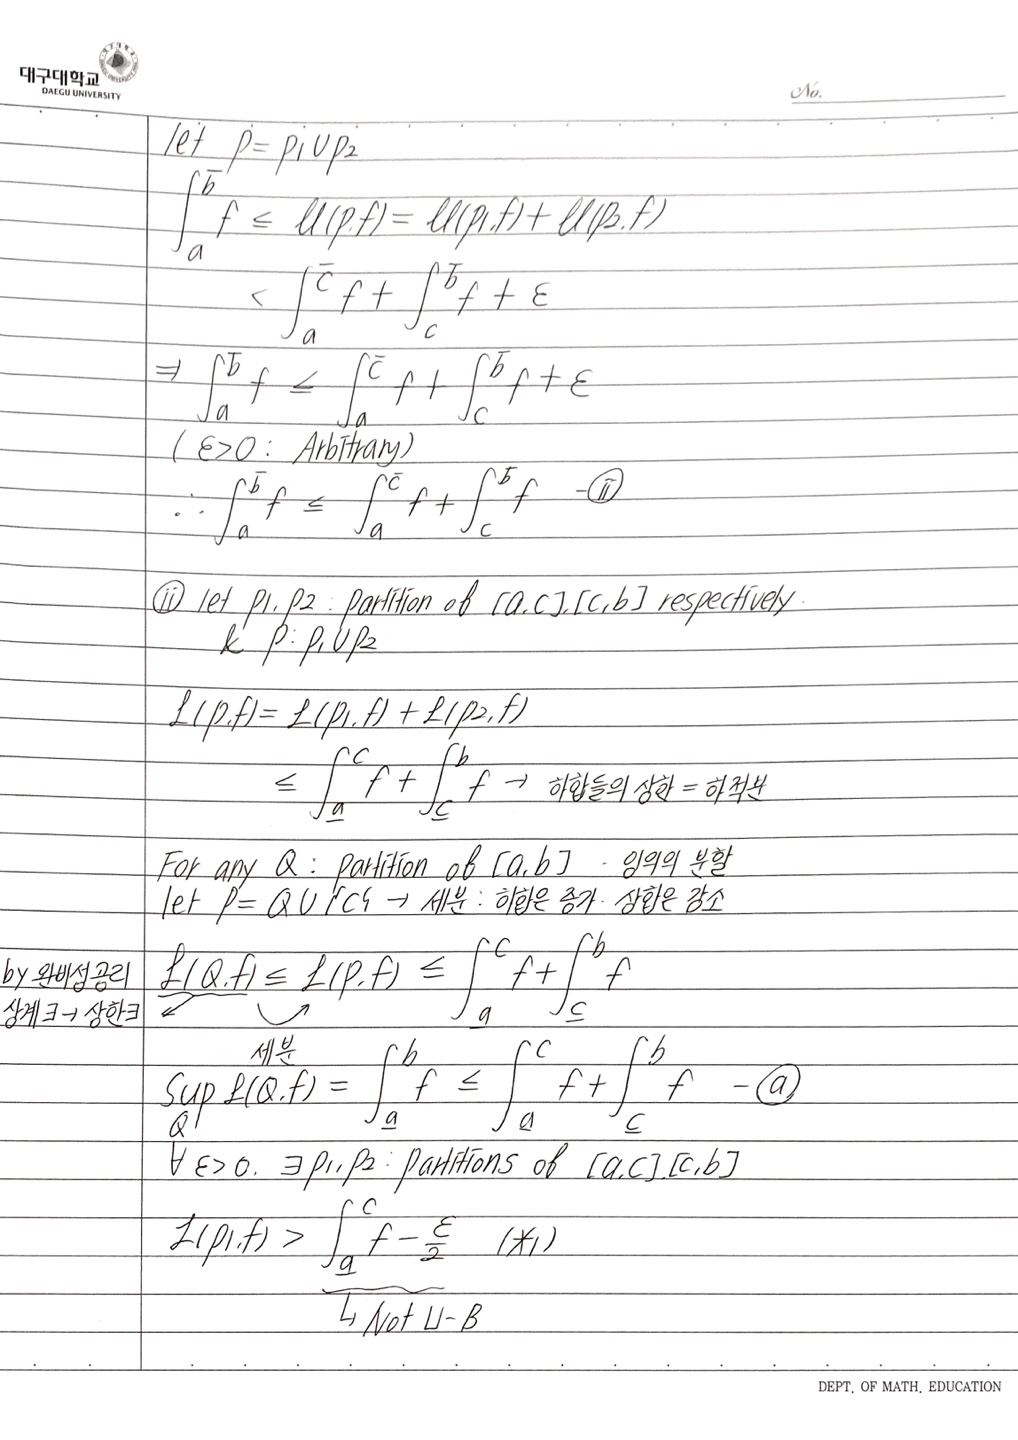 대구대학교
DAEGU UNIVERSITY
No.
let p = p₁∪p₂
∫ₐ^b̄ f ≤ U(p.f) = U(p₁.f) + U(p₂.f)
< ∫ₐ^c̄ f + ∫_c^b̄ f + ε
⇒ ∫ₐ^b̄ f ≤ ∫ₐ^c̄ f + ∫_c^b̄ f + ε
( ε>0 : Arbitrary)
∴ ∫ₐ^b̄ f ≤ ∫ₐ^c̄ f + ∫_c^b̄ f -ⓘⓘ
ⓘⓘ let p₁, p₂ : partition of [a.c].[c,b] respectively.
& p : p₁∪p₂
L(p.f) = L(p₁.f) + L(p₂,f)
≤ ∫_a̲^c f + ∫_c̲^b f → 하합들의 상한 = 하적분
For any Q : partition of [a,b] · 임의의 분할
let p = Q∪{c} → 세분 : 하합은 증가. 상합은 감소
by 완비성공리
상계∃→상한∃
L(Q.f) ≤ L(p.f) ≤ ∫_a̲^c f + ∫_c̲^b f
세분
Sup L(Q.f) = ∫_a̲^b f ≤ ∫_a̲^c f + ∫_c̲^b f -ⓐ
Q
∀ ε>0. ∃p₁,p₂ : partitions of [a,c].[c,b]
L(p₁.f) > ∫_a̲^c f - ε/2 (*₁)
↳ Not U-B
DEPT. OF MATH. EDUCATION